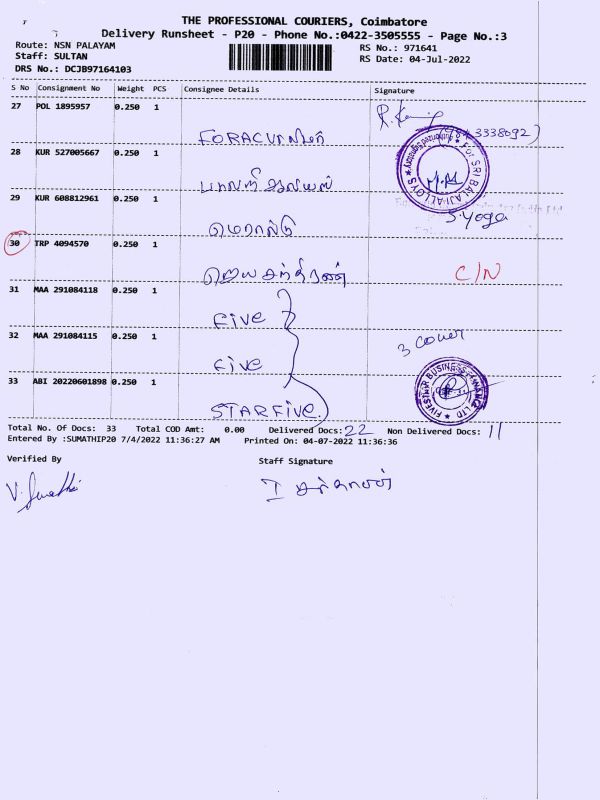 THE PROFESSIONAL COURIERS, Coimbatore
Delivery Runsheet - P20 - Phone No.:0422-3505555 - Page No.:3
Route: NSN PALAYAM
RS No.: 971641
Staff: SULTAN
RS Date: 04-Jul-2022
DRS No.: DCJB97164103
S No Consignment No Weight PCS Consignee Details Signature
27 POL 1895957 0.250 1
28 KUR 527005667 0.250 1
FOR SRI BALAJI ALLOYS
29 KUR 608812961 0.250 1
S.Yoga
30 TRP 4094570 0.250 1
C/N
31 MAA 291084118 0.250 1
FIVE
32 MAA 291084115 0.250 1
3 cover
FIVE
33 ABI 20220601898 0.250 1
FIVESTAR BUSINESS FINANCE LTD
STARFIVE
Total No. Of Docs: 33 Total COD Amt: 0.00 Delivered Docs: 22 Non Delivered Docs: 11
Entered By :SUMATHIP20 7/4/2022 11:36:27 AM Printed On: 04-07-2022 11:36:36
Verified By Staff Signature